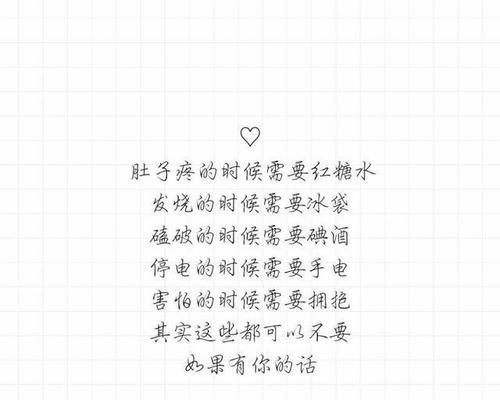 肚子疼的时候需要红糖水
发烧的时候需要冰袋
磕破的时候需要碘酒
停电的时候需要手电
害怕的时候需要拥抱
其实这些都可以不要
如果有你的话